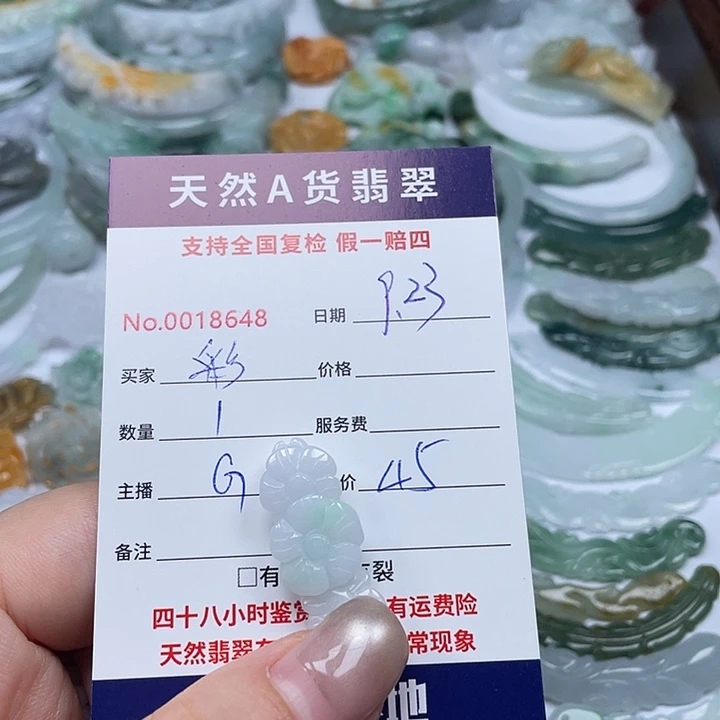 天然A货翡翠
支持全国复检 假一赔四
No.0018648 日期 9.23
买家 彩 价格
数量 1 服务费
主播 G 价 45
备注
□有 裂
四十八小时鉴赏 有运费险
天然翡翠 常现象
地